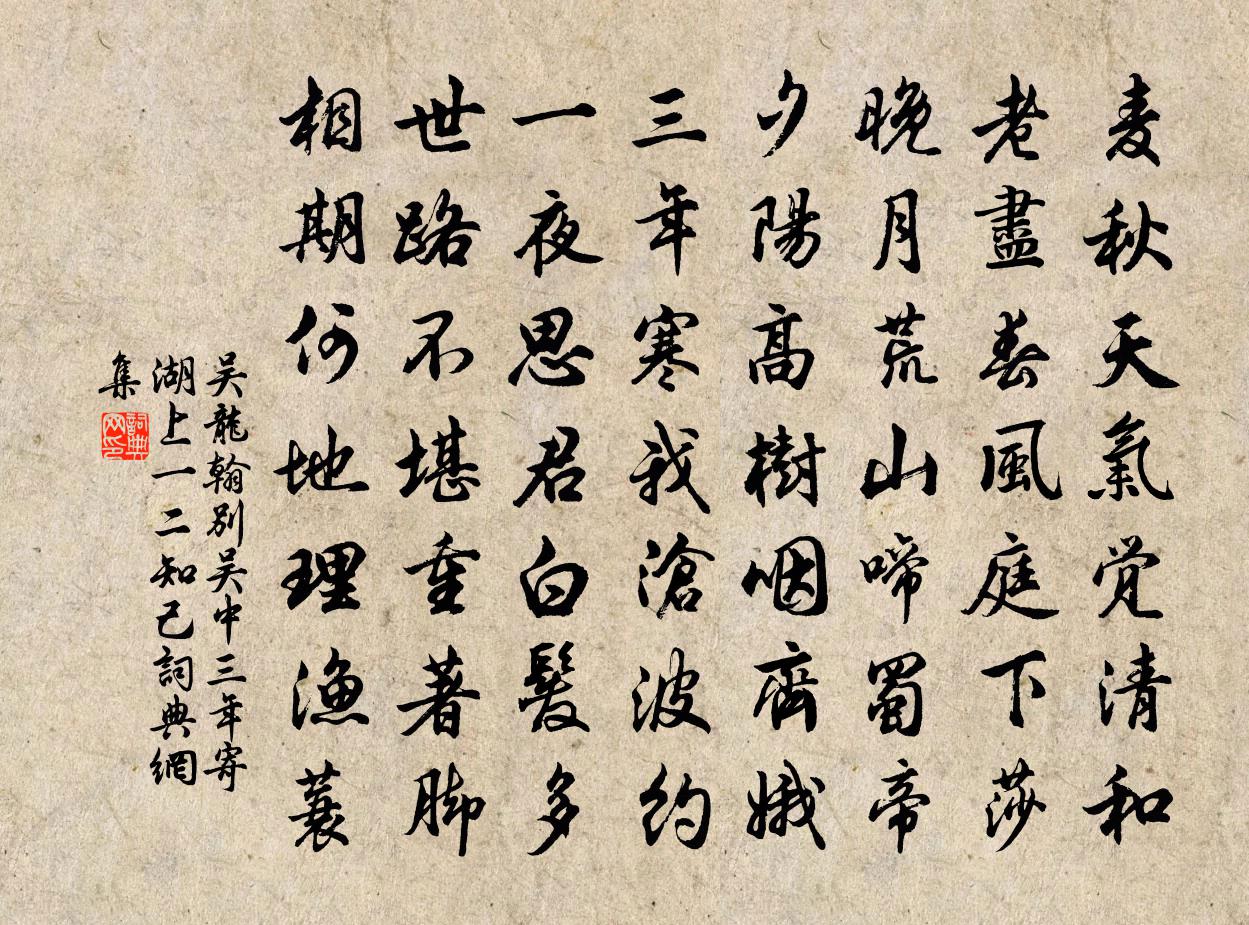 麦秋天氣覺清和
老盡春風庭下莎
晚月荒山啼蜀帝
夕陽高樹咽齊娥
三年寒我滄波約
一夜思君白髮多
世路不堪重著脚
相期何地理漁蓑
吴龍翰别吴中三年寄
湖上一二知己詞典網
集
詞典網印